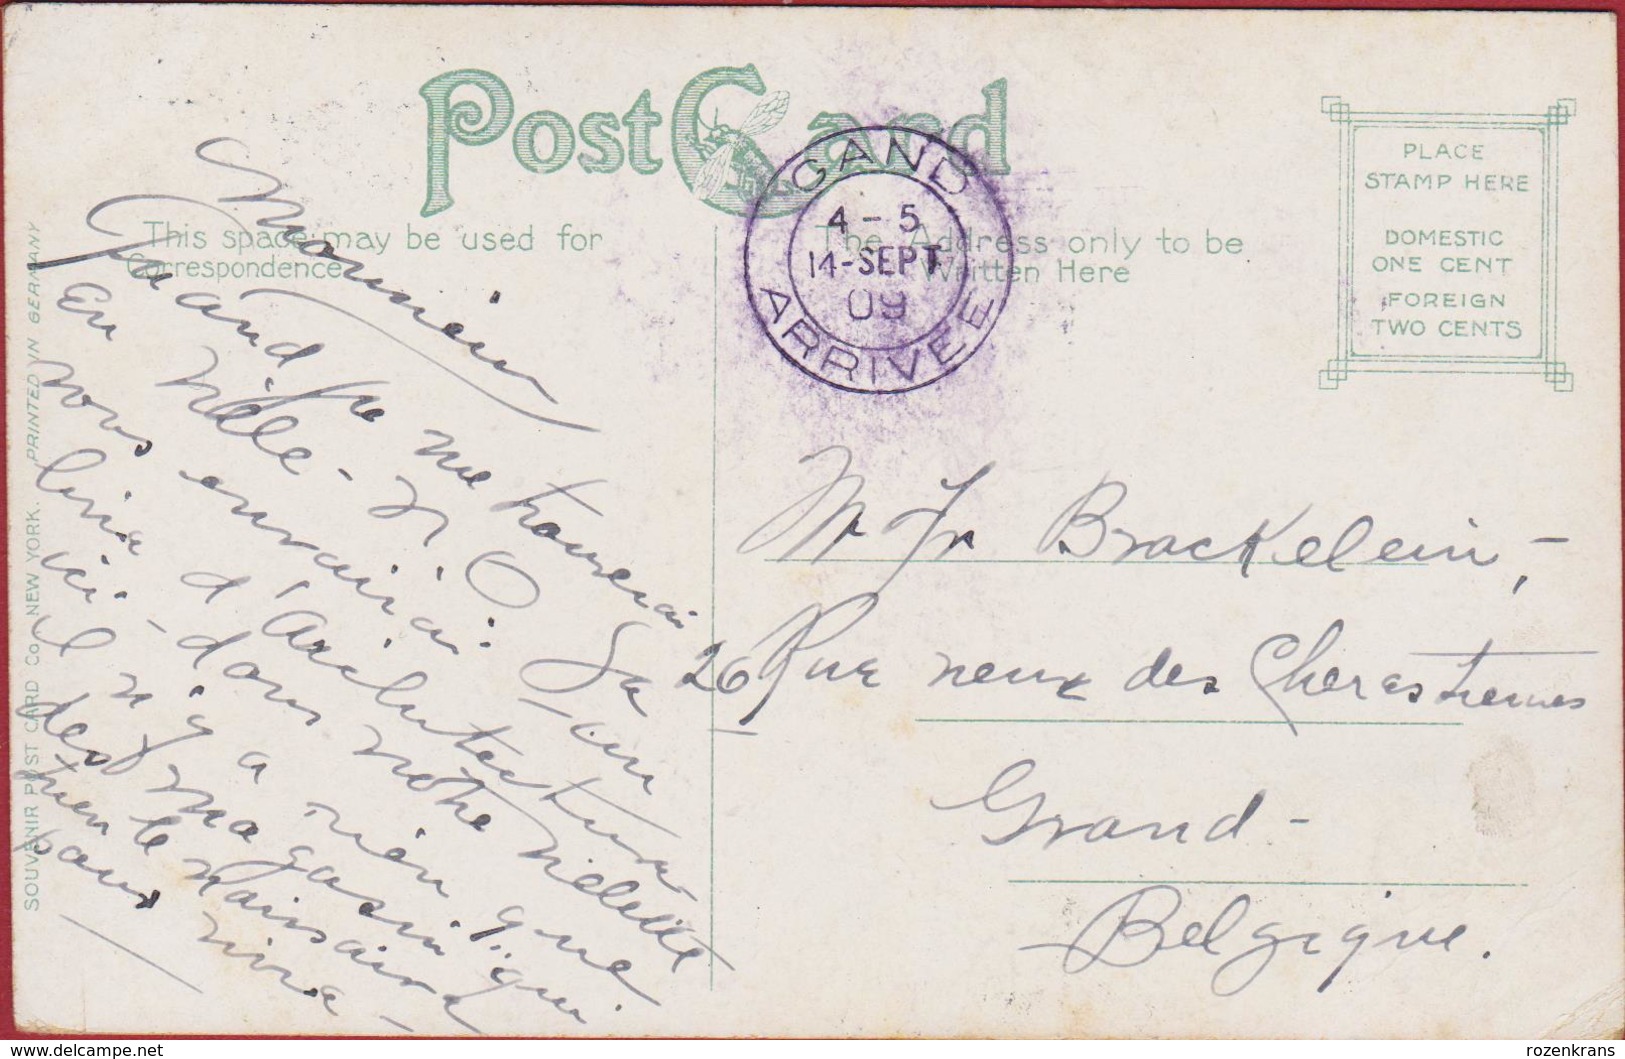 Post Card
This space may be used for
Correspondence
The Address only to be
Written Here
GAND
4 - 5
14-SEPT
09
ARRIVEE
PLACE
STAMP HERE
DOMESTIC
ONE CENT
FOREIGN
TWO CENTS
SOUVENIR POST CARD Co. NEW YORK. PRINTED IN GERMANY
Monsieur
Quand je me trouverai
en ville - N
vous enverrai. un
livre d'Architecture
ici - dans notre
il n'y a rien que
des magasins qui
tien le
pour
Mr Fr Brackelein, -
26 Rue neuve des
Grand -
Belgique.
delcampe.net
rozenkrans